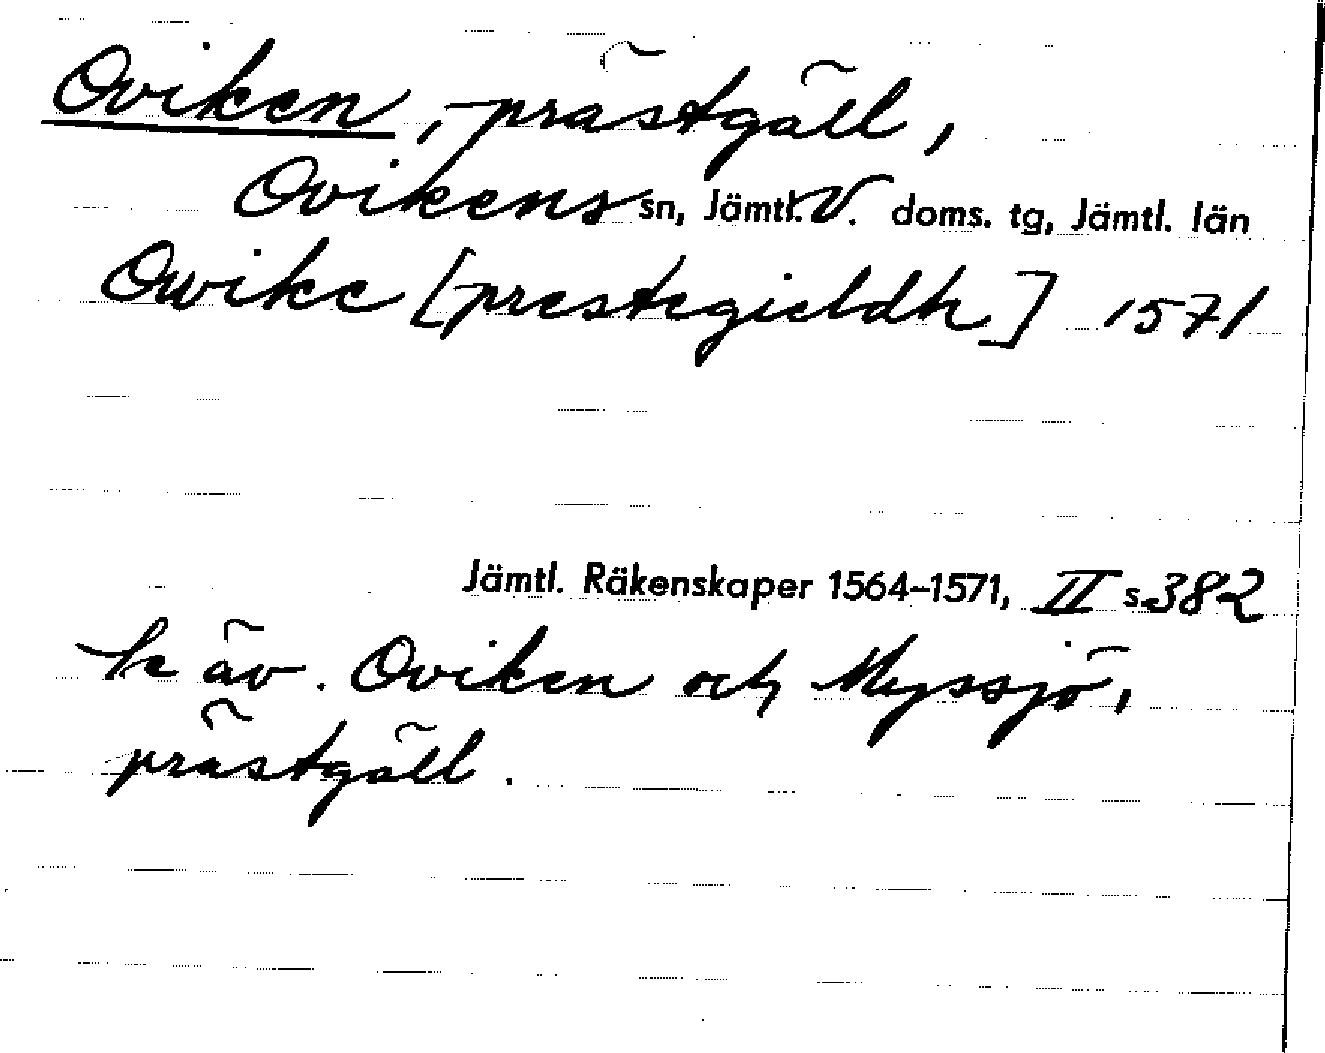 Oviken, prästgäll,
Ovikens sn, Jämtl. V. doms. tg, Jämtl. län
Owike [prestegieldh] 1571
Jämtl. Räkenskaper 1564–1571, II s. 382
äv. Oviken och Myssjö,
prästgäll.